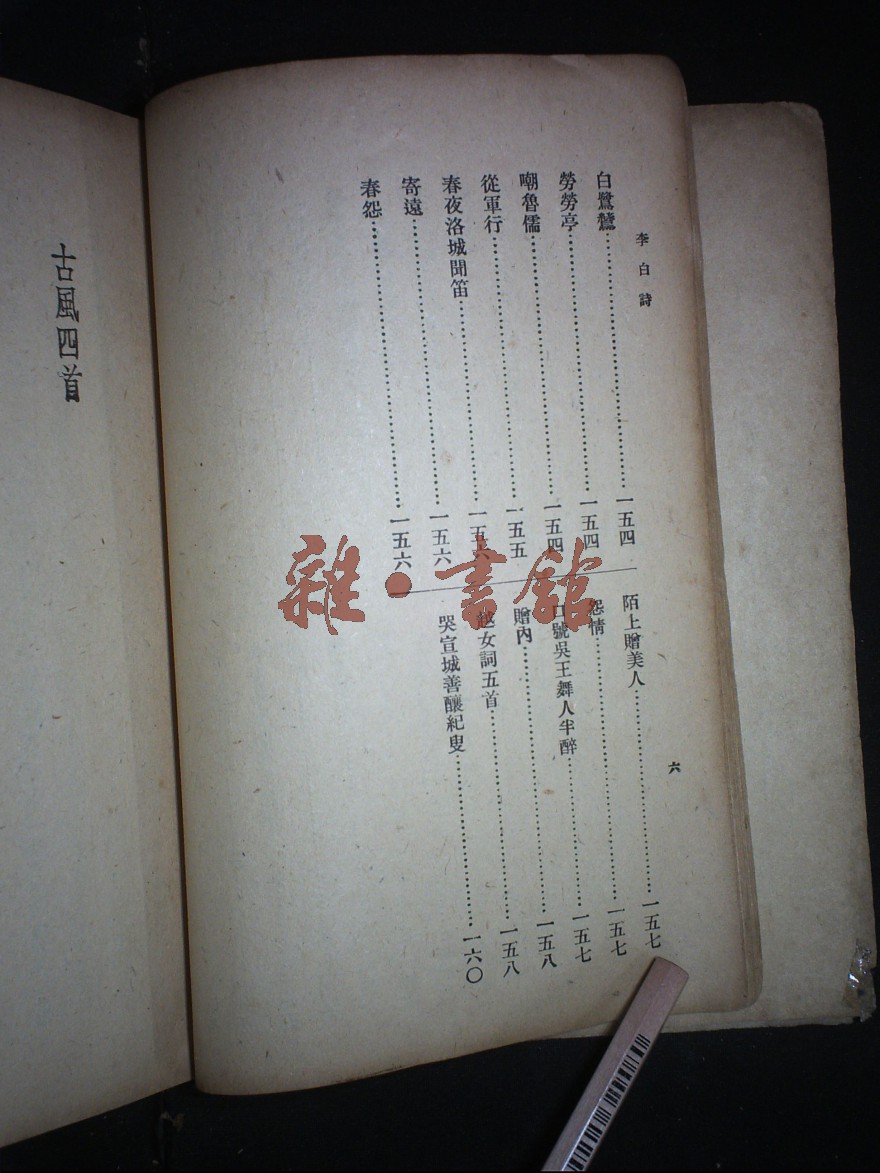 李白詩
六
白鷺鷥……一五四
勞勞亭……一五四
嘲魯儒……一五四
從軍行……一五五
春夜洛城聞笛……一五六
寄遠……一五六
春怨……一五六
陌上贈美人……一五七
怨情……一五七
口號吳王舞人半醉……一五七
贈內……一五八
越女詞五首……一五八
哭宣城善釀紀叟……一六〇
古風四首
雜·書館